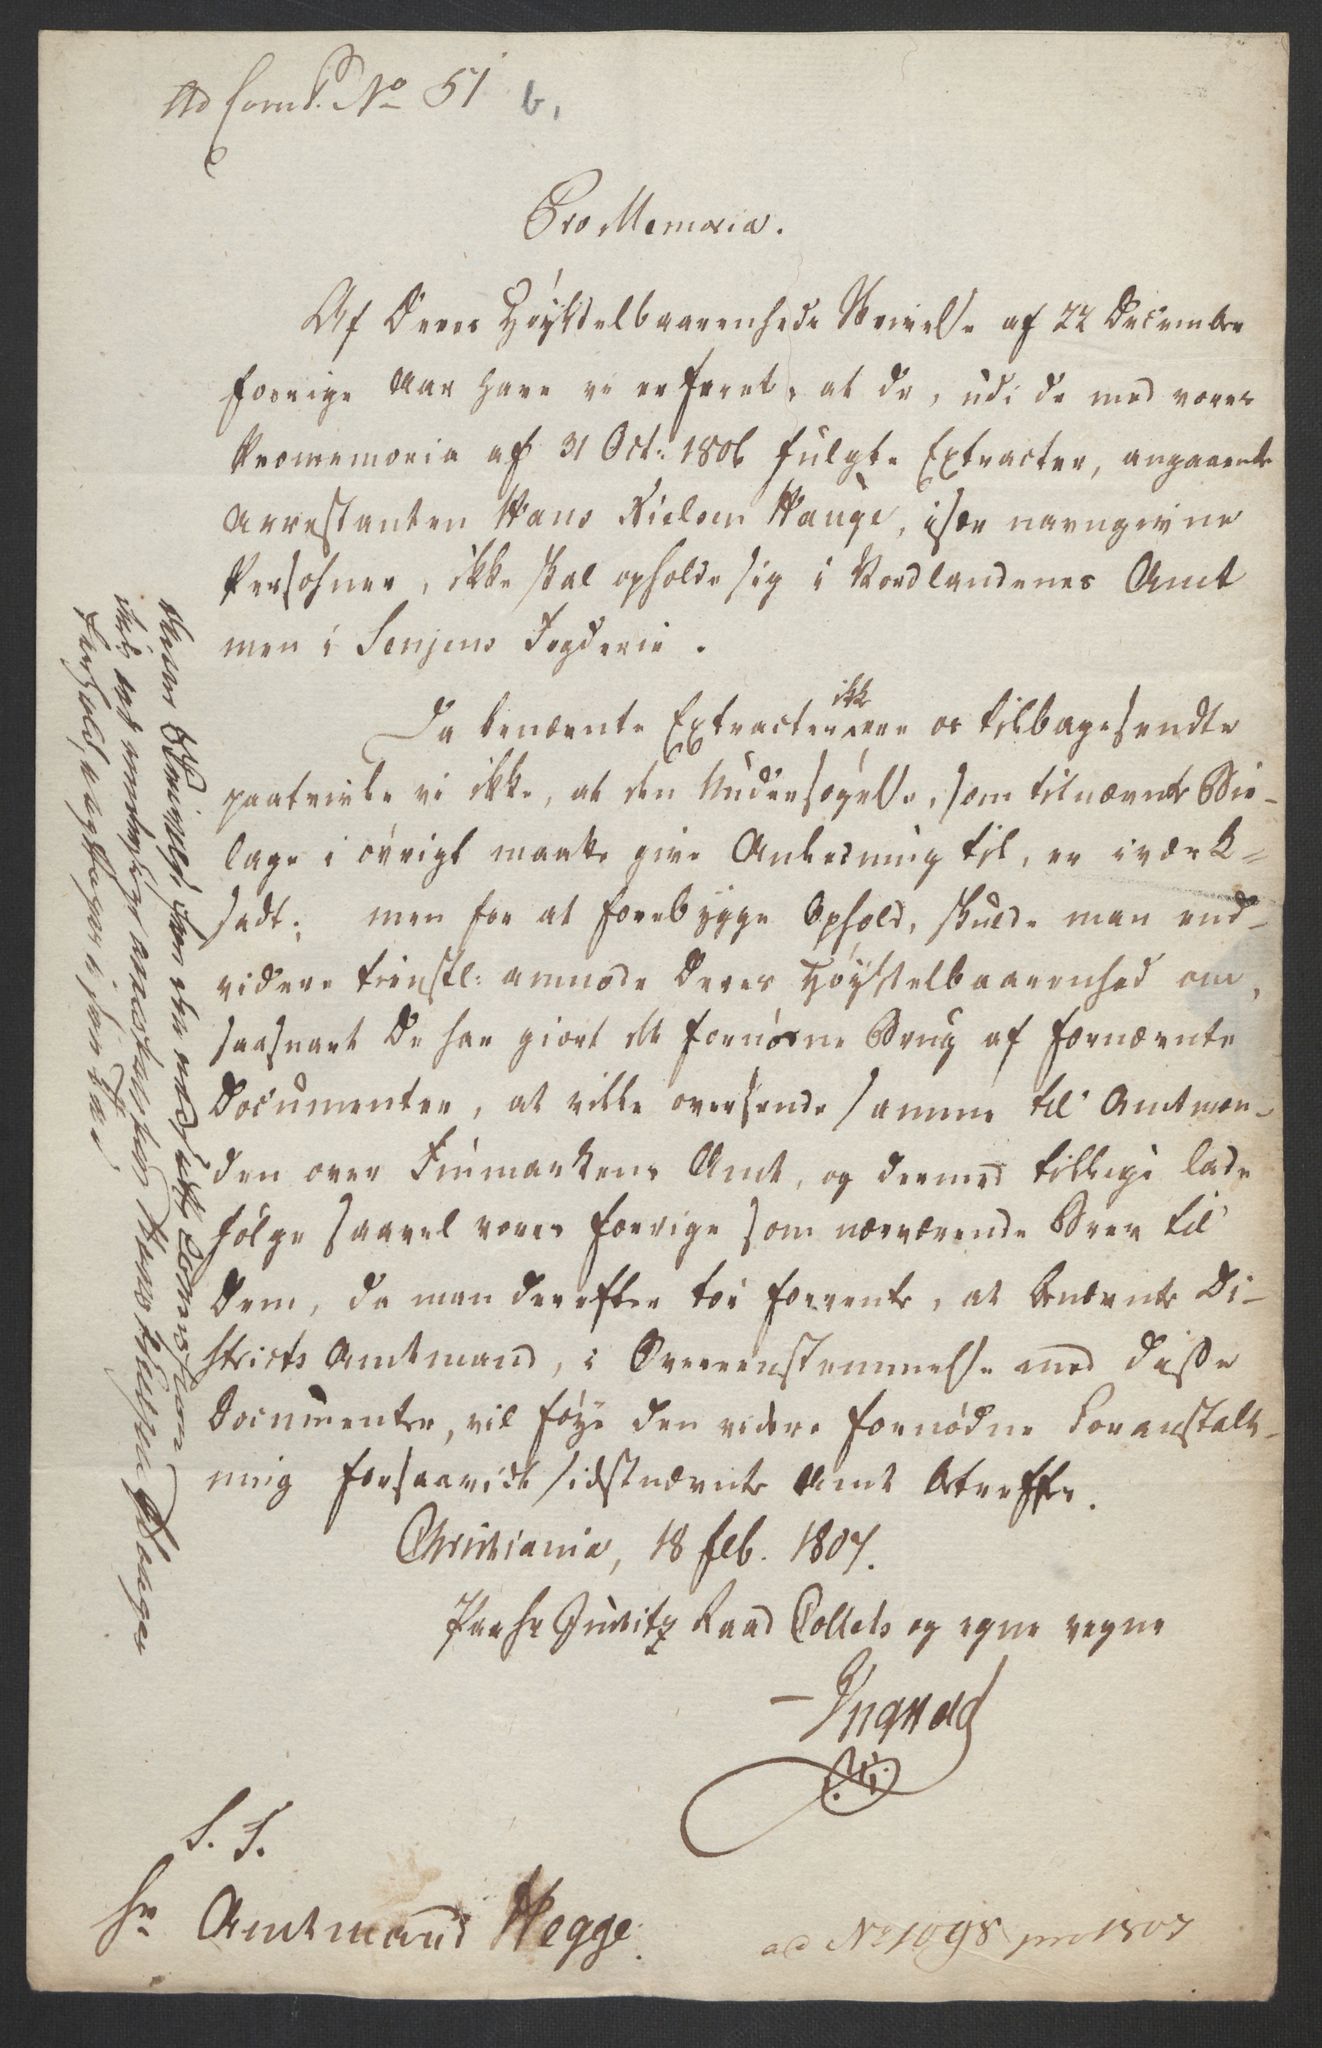 Ad Comd. No 51 b,
Pro Memoria.
Af Deres Høyædelbaarenheds Skrivelse af 22 December
forrige Aar have vi erfaret, at de, udi de med vores
Promemoria af 31 Oct: 1806 fulgte Extracter, angaaende
Arrestanten Hans Nielsen Hauge, især navngivne
Persohner, ikke skal opholde sig i Nordlandenes Amt
men i Senjens Fogderie.
ikke
Da benævnte Extracter ere os tilbagesendte
paatvivle vi ikke, at den Undersøgelse, som tilnævnte Bie-
lage i øvrigt maatte give Anledning til, er iværk=
sadt; men for at forebygge Ophold, skulde man end-
videre tienstl: anmode Deres Høyædelbaarenhed om,
saasnart De har giort det fornødne Brug af fornævnte
Documenter, at ville oversende samme til Amtman-
den over Finmarkens Amt, og dermed tillige lade
følge saavel vores forrige som nærværende Brev til
Dem, da man derefter tør forvente, at benævnte Di-
stricts Amtmand, i Overeensstemmelse med disse
Documenter, vil føye den videre fornødne Foranstalt-
ning forsaavidt sidstnævnte Amt betreffer.
Christiania, 18 Feb. 1807.
Paa Hr Justitz Raad Collets og egne vegne
Ingstad
S. T.
Hr Amtmand Hegge.
ad No 1098 pro 1807
Commission
Arrestanten Hans Nielsen Hauges
Forhold